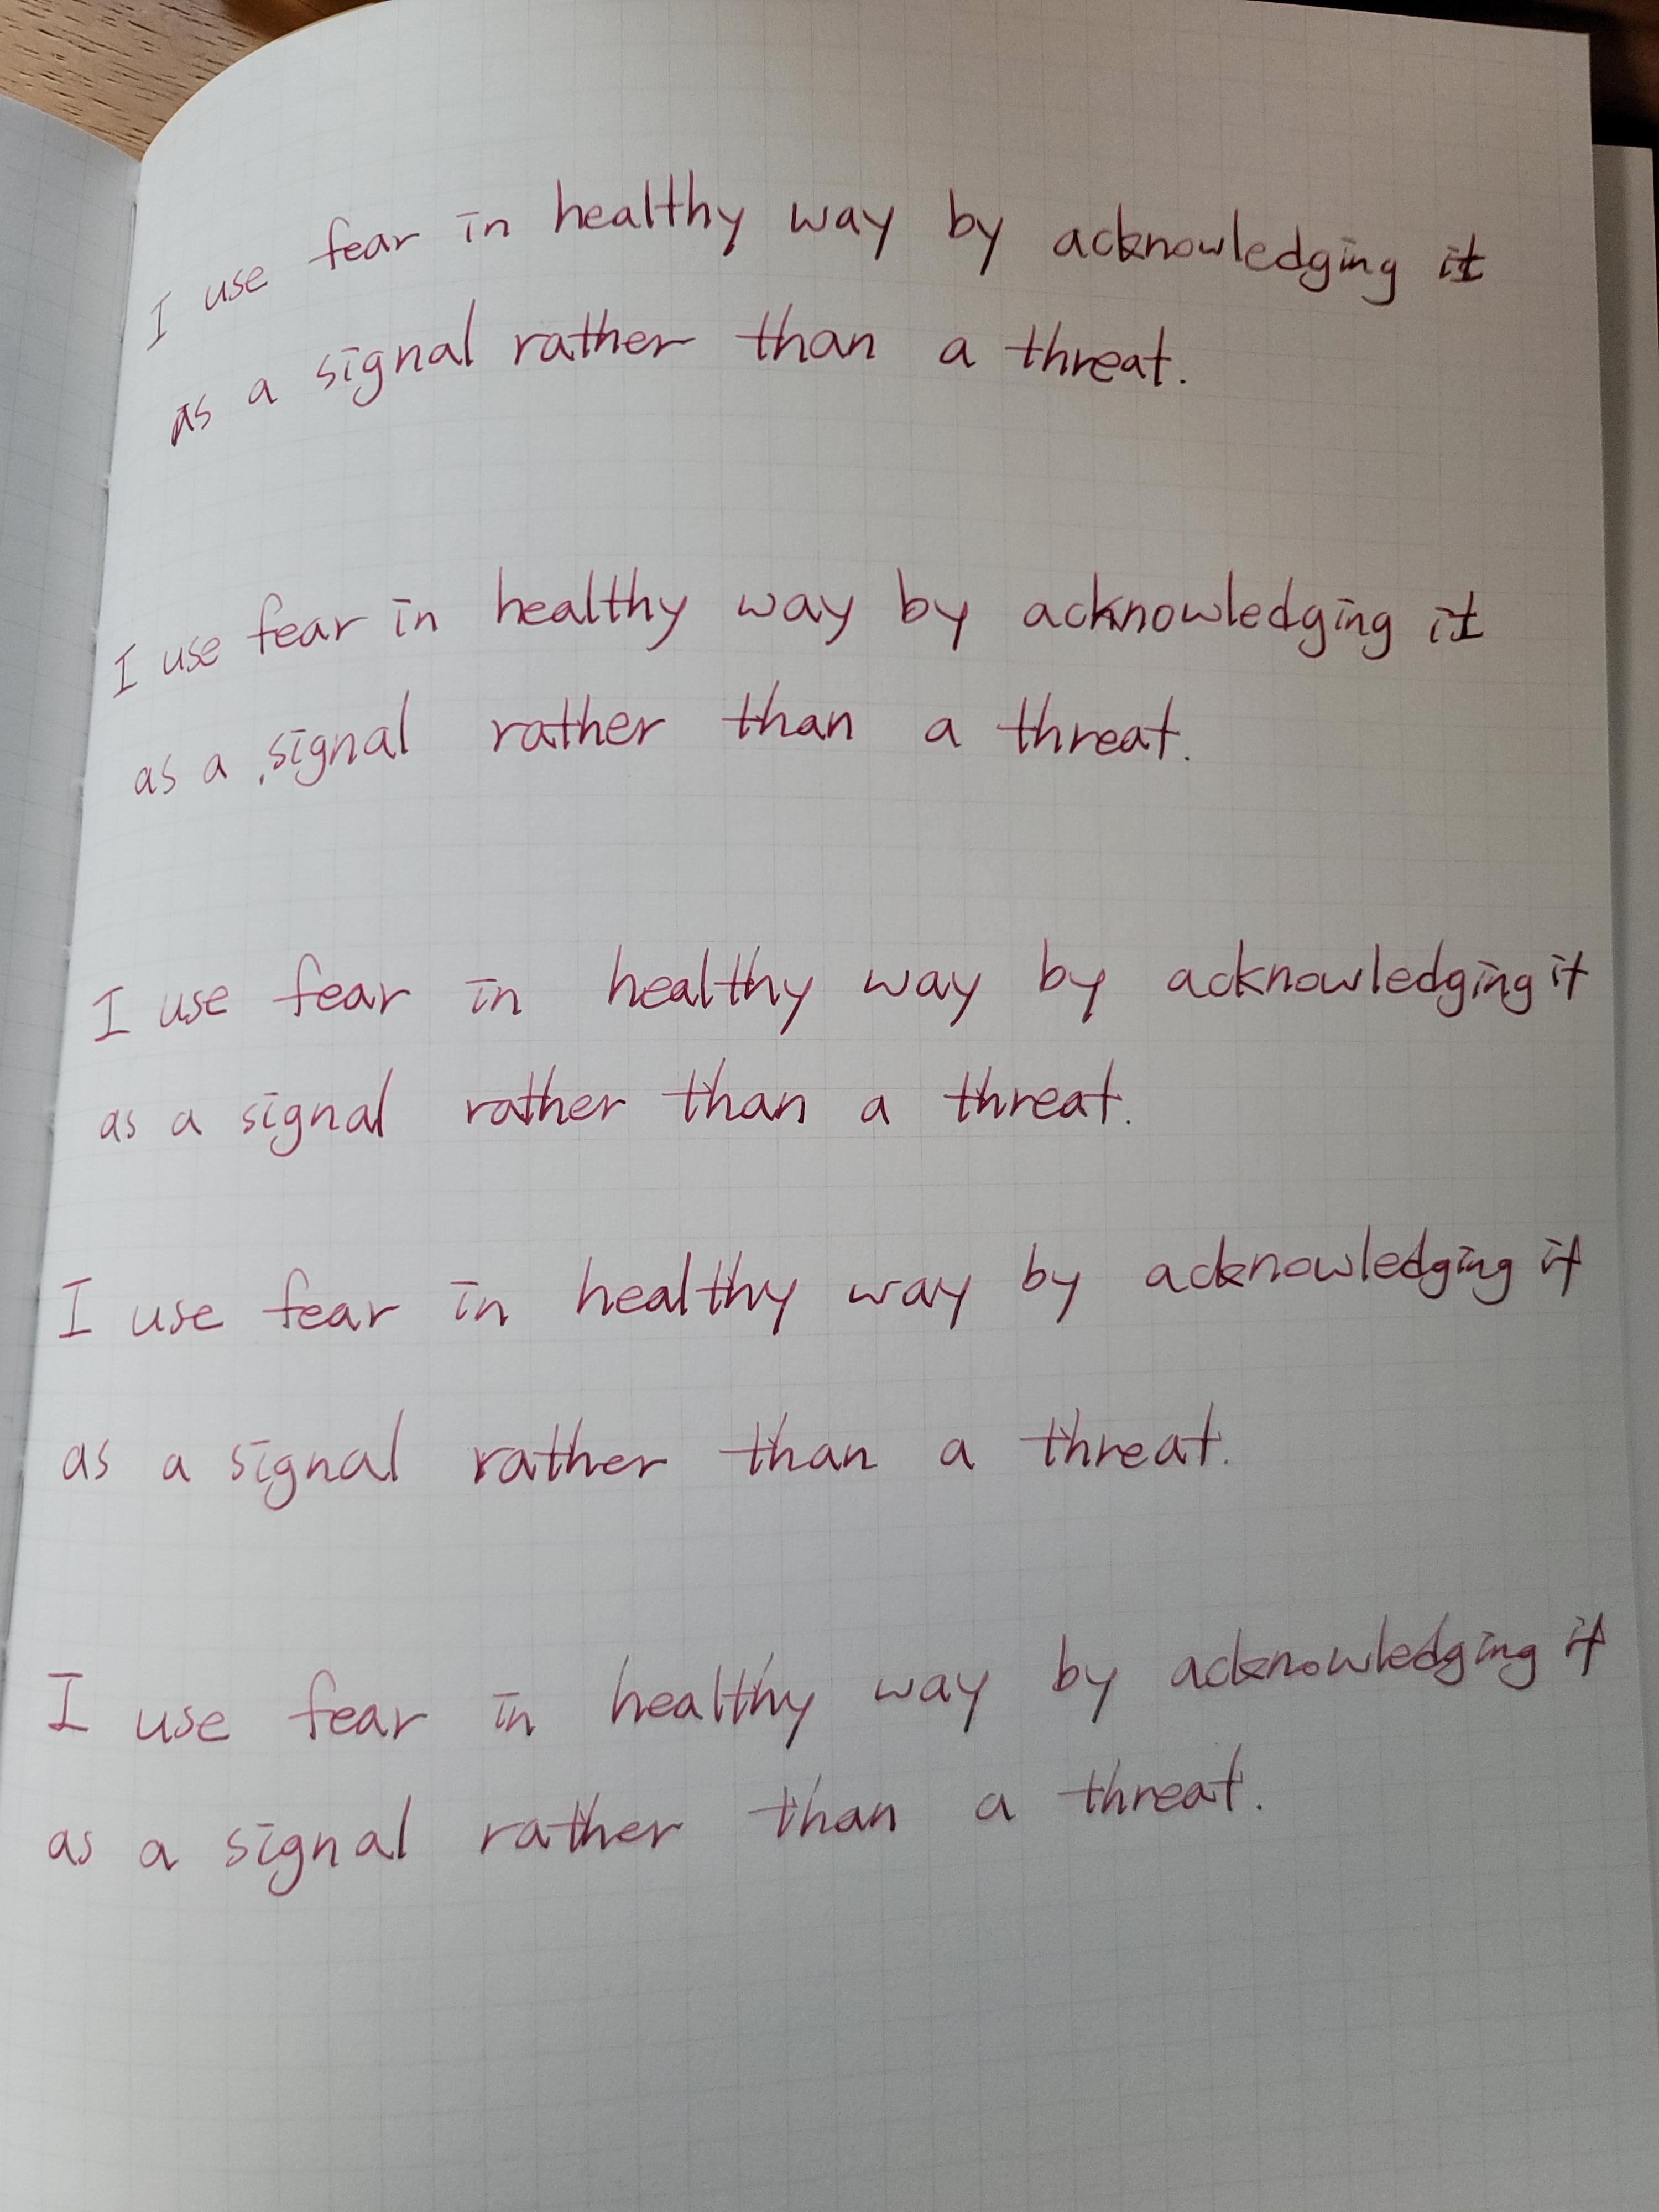 I use fear in healthy way by acknowledging it
as a signal rather than a threat.
I use fear in healthy way by acknowledging it
as a signal rather than a threat.
I use fear in healthy way by acknowledging it
as a signal rather than a threat.
I use fear in healthy way by acknowledging it
as a signal rather than a threat.
I use fear in healthy way by acknowledging it
as a signal rather than a threat.